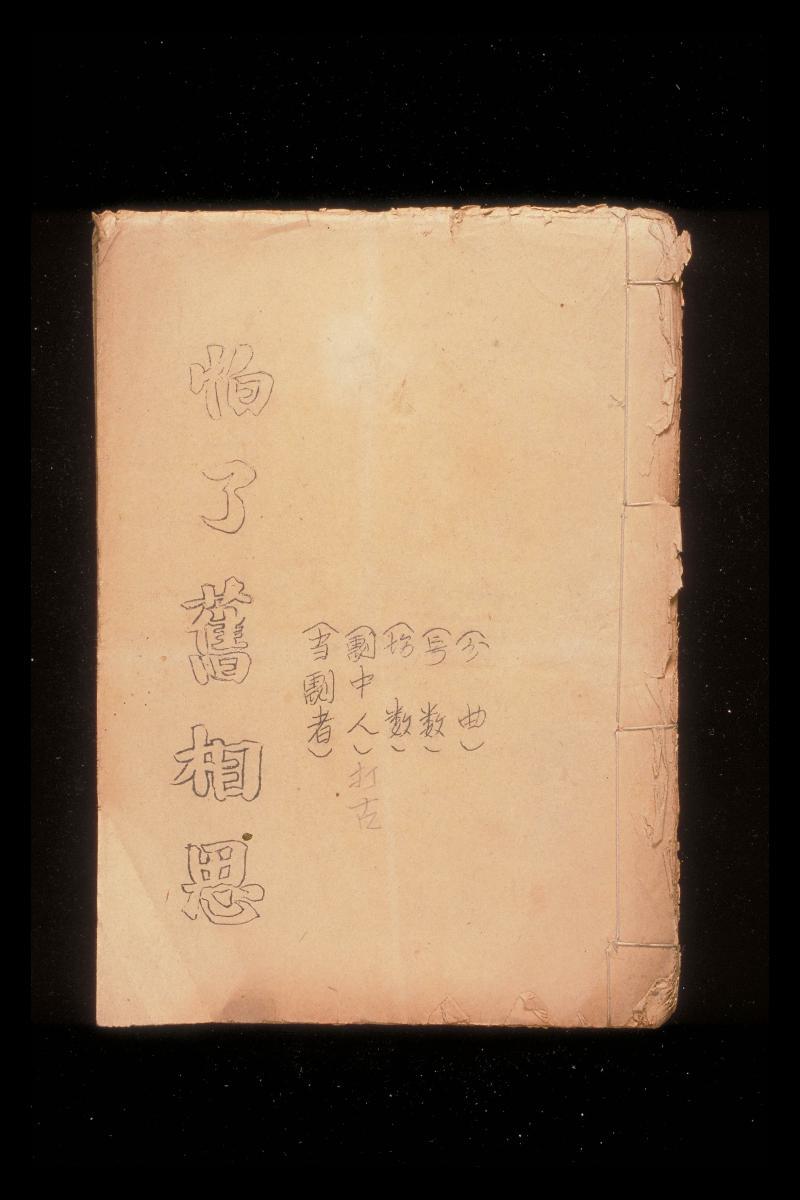 (分曲)
(号数)
(坊数)
(劇中人)打古
(当劇者)
怕了舊相思